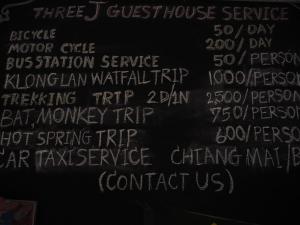 THREE J GUESTHOUSE SERVICE
BICYCLE 50/DAY
MOTOR CYCLE 200/DAY
BUSSTATION SERVICE 50/PERSON
KLONGLAN WATFALL TRIP 1000/PERSON
TREKKING TRTP 2D/1N 2,500/PERSON
BAT, MONKEY TRIP 750/PERSON
HOT SPRING TRIP 600/PERSON
CAR TAXI SERVICE CHIANG MAI/B
(CONTACT US)